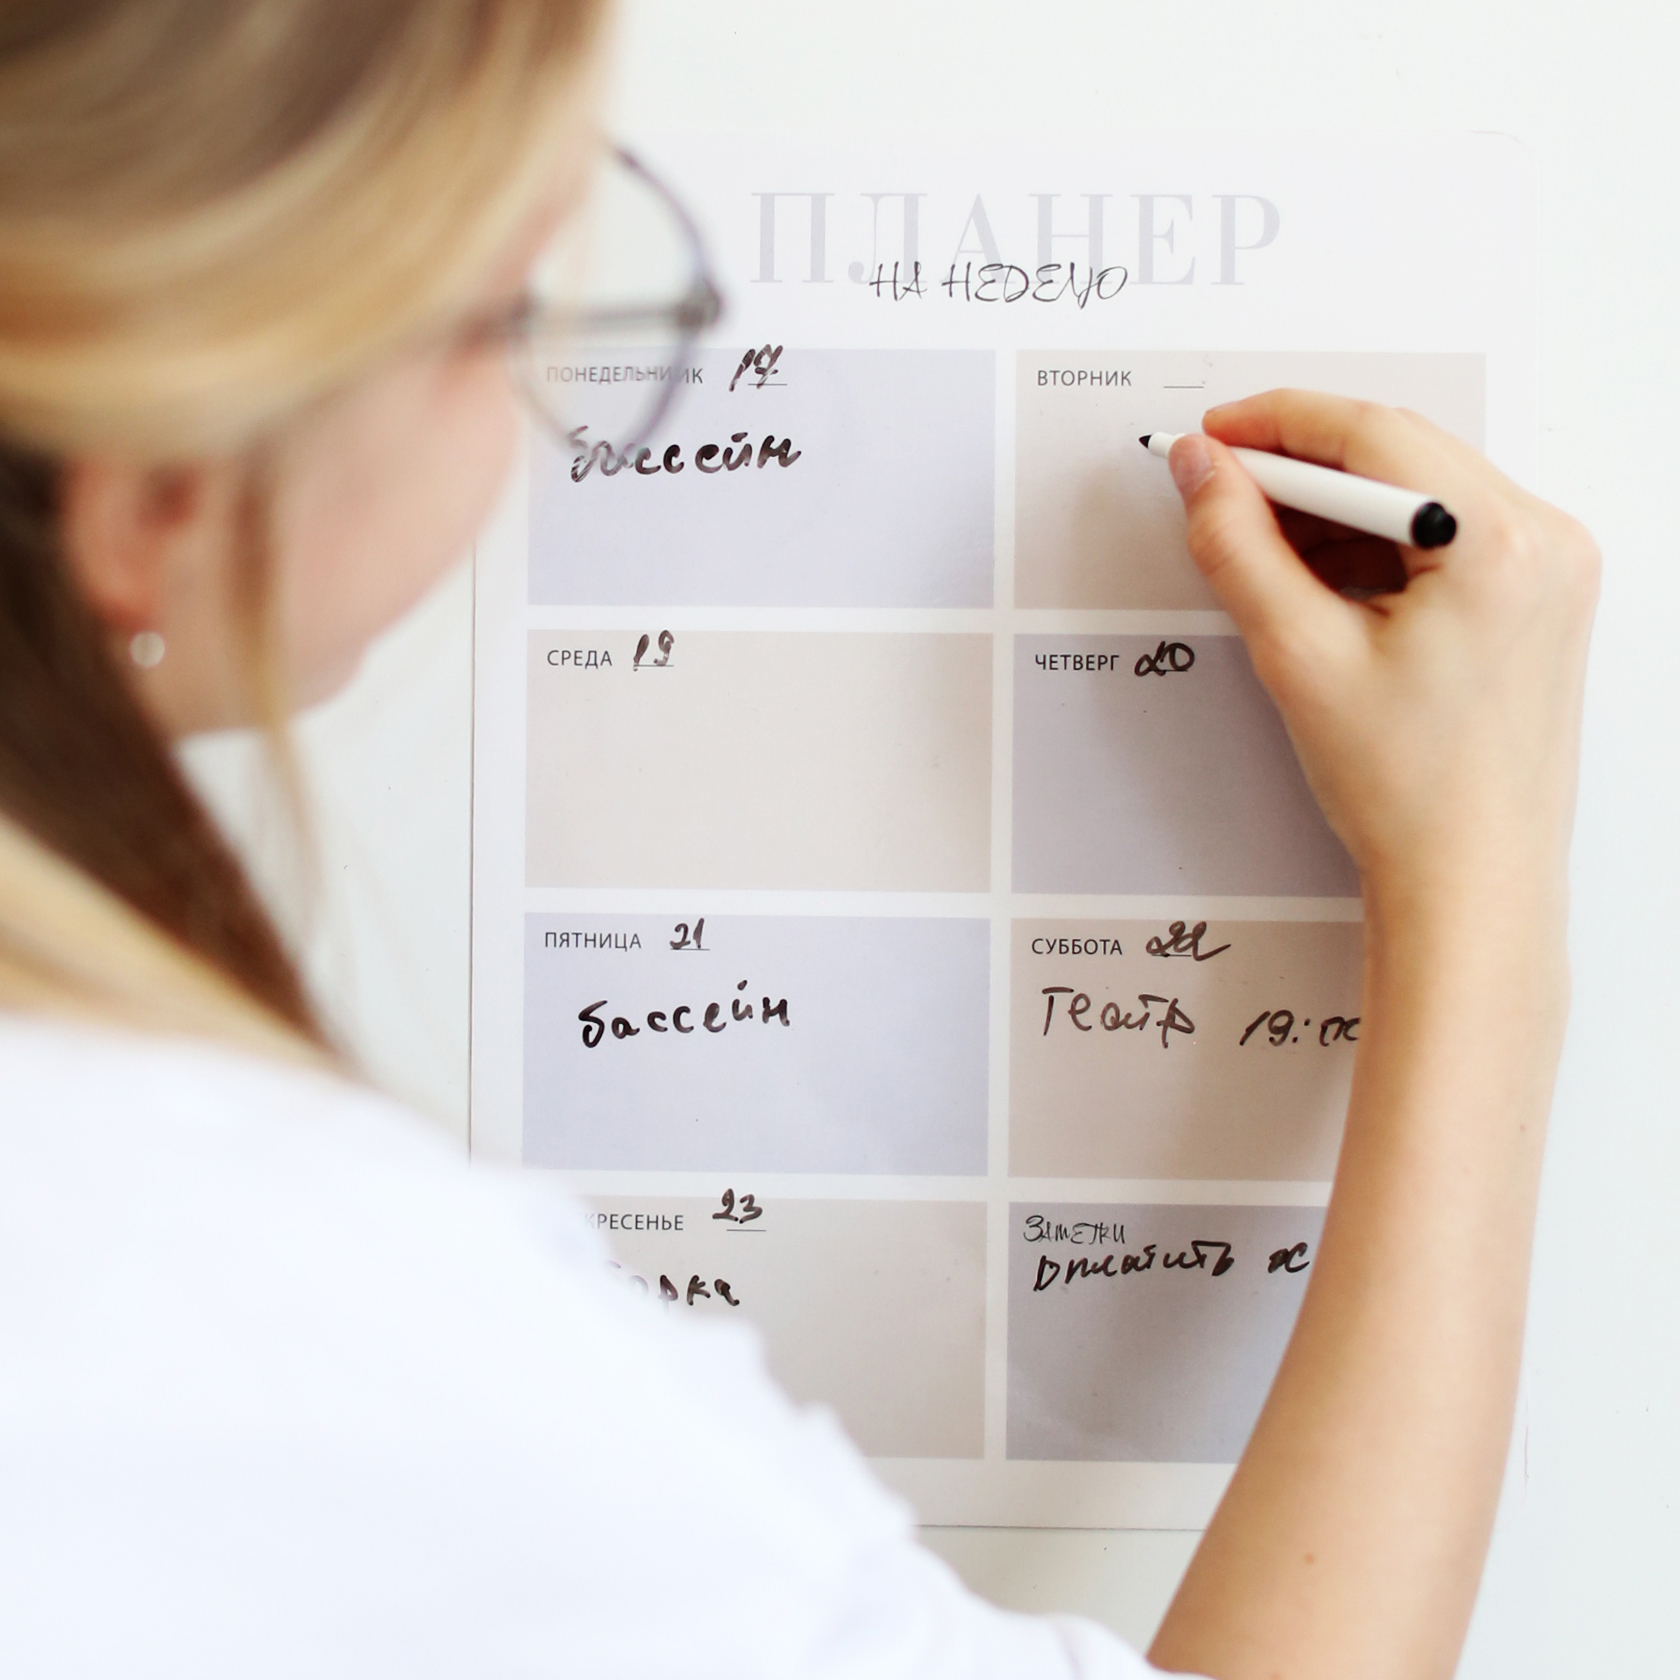 ПЛАНЕР
НА НЕДЕЛЮ
ПОНЕДЕЛЬНИК 17
бассейн
ВТОРНИК
СРЕДА 19
ЧЕТВЕРГ 20
ПЯТНИЦА 21
бассейн
СУББОТА 22
Театр 19:
КРЕСЕНЬЕ 23
борка
Заметки
Оплатить